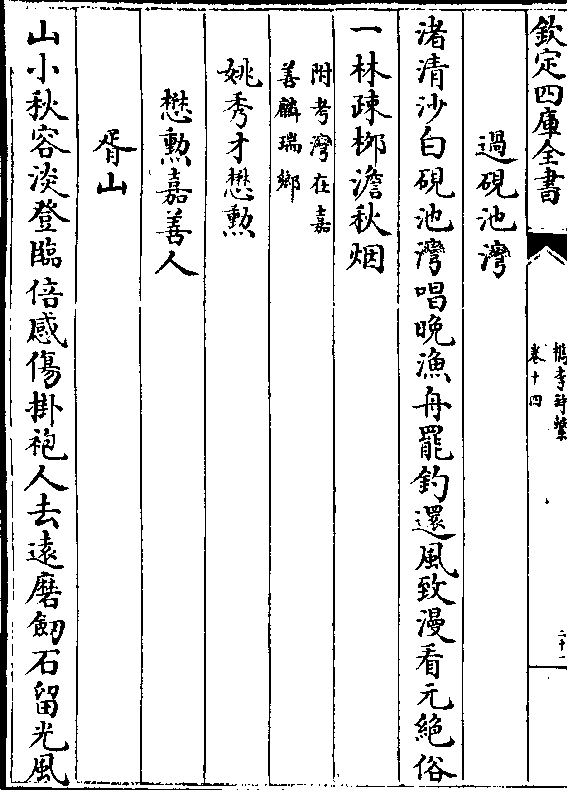 欽定四庫全書
檇李詩繫
卷十四
二十一
過硯池灣
渚清沙白硯池灣唱晚漁舟罷釣還風致漫看元絶俗
一林疎栁澹秋烟
附考灣在嘉
善麟瑞鄉
姚秀才懋勲
懋勲嘉善人
胥山
山小秋容淡登臨倍感傷掛袍人去遠磨劒石留光風